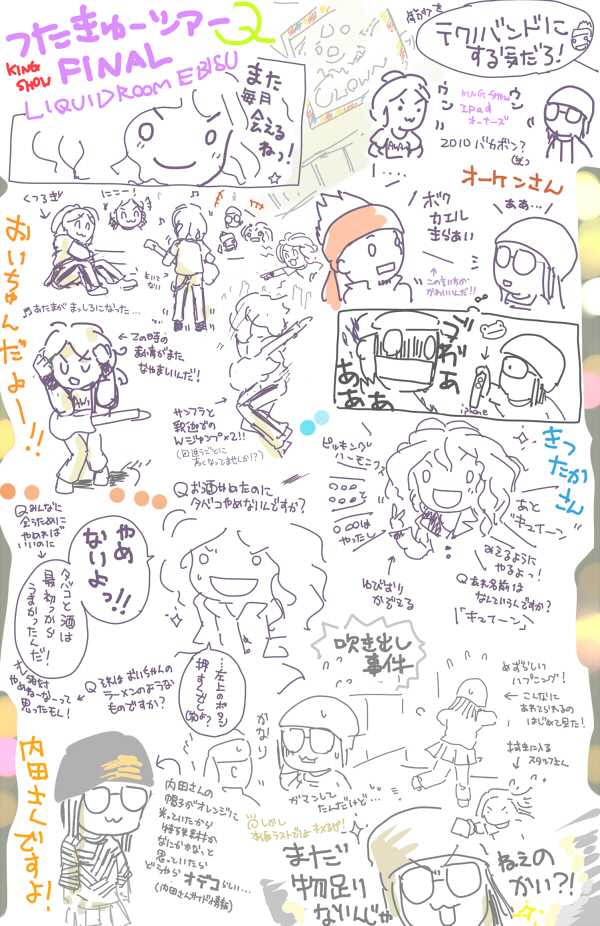 つたきゅーツアー2
KING SHOW
FINAL
LIQUIDROOM EBISU
また
毎月
会える
ねっ!
CLOWN
テクノバンドに
する気だろ!
ウン
ウン
KING-SHOW
IPad
オーナーズ
2010 バカボン?
(笑)
オーケンさん
ボク
カエル
きらぁい
ああ…
この言い方が
かわいいんだ!!
ゴワぁ
ああああ
iphone
おいちゅんだよー!!
くつろぎ
にこー!
あたまが まっしろになった…
この時の
表情がまた
なやましいんだ!
サンフラと
釈迦での
Wジャンプ×2!!
(回追うごとに
高くなってませんか!?)
きったかさん
ピッキング
ハーモニクス
○○○はやったし
ゆびおり
かぞえる
あと
"キュイーン"
みえるように
やるよっ!
Qあれ名前は
なんていうんですか?
「"キュイーン"」
Qお酒やめたのに
タバコやめないんですか?
やめ
ないよっ!!
Qみんなに
会うために
やめれば
いいのに
タバコと酒は
最初っから
うまかったんだ!
オレ絶対
やめねーなーって
思ったもん!
Qそれはおいちゃんの
ラーメンのような
ものですか?
…左上のボタン
押すと出るよ
(笑)
吹き出し
事件
めずらしい
ハプニング!
こんなに
あわてられるの
はじめて見た!
拭きに入る
スタッフさん
かなり
ガマンして
たんだけど…
内田さんですよ!
内田さんの
帽子がオレンジに
光っていたから
特殊素材か
なにかかな、と
思っていたら
どうやらオデコらしい…
(内田さんサイド情報)
@しかし
本編ラストだよキメるぜ!
まだ
物足り
ないんじゃ
ねえの
かい?!